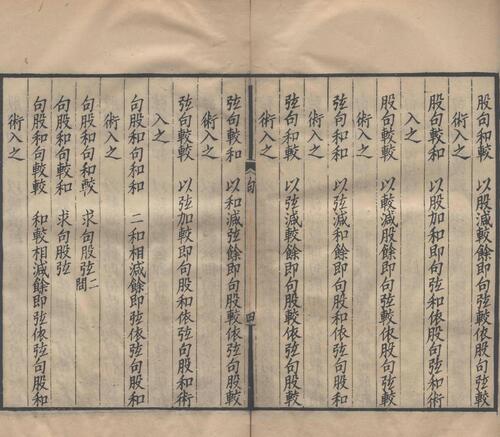 股句和較 以股減較餘即句弦較依股句弦較
術入之
股句較和 以股加和即句弦和依股句弦和術
入之
股句較較 以較減股餘即句弦較依股句弦較
術入之
弦句和和 以弦減和餘即句股和依弦句股和
術入之
弦句和較 以弦減較餘即句股較依弦句股較
術入之
句 四
弦句較和 以和減弦餘即句股較依弦句股較
術入之
弦句較較 以弦加較即句股和依弦句股和術
入之
句股和句和和 二和相減餘即弦依弦句股和
術入之
句股和句和較 求句股弦二問
句股和句較和 求句股弦
句股和句較較 和較相減餘即弦依弦句股和
術入之